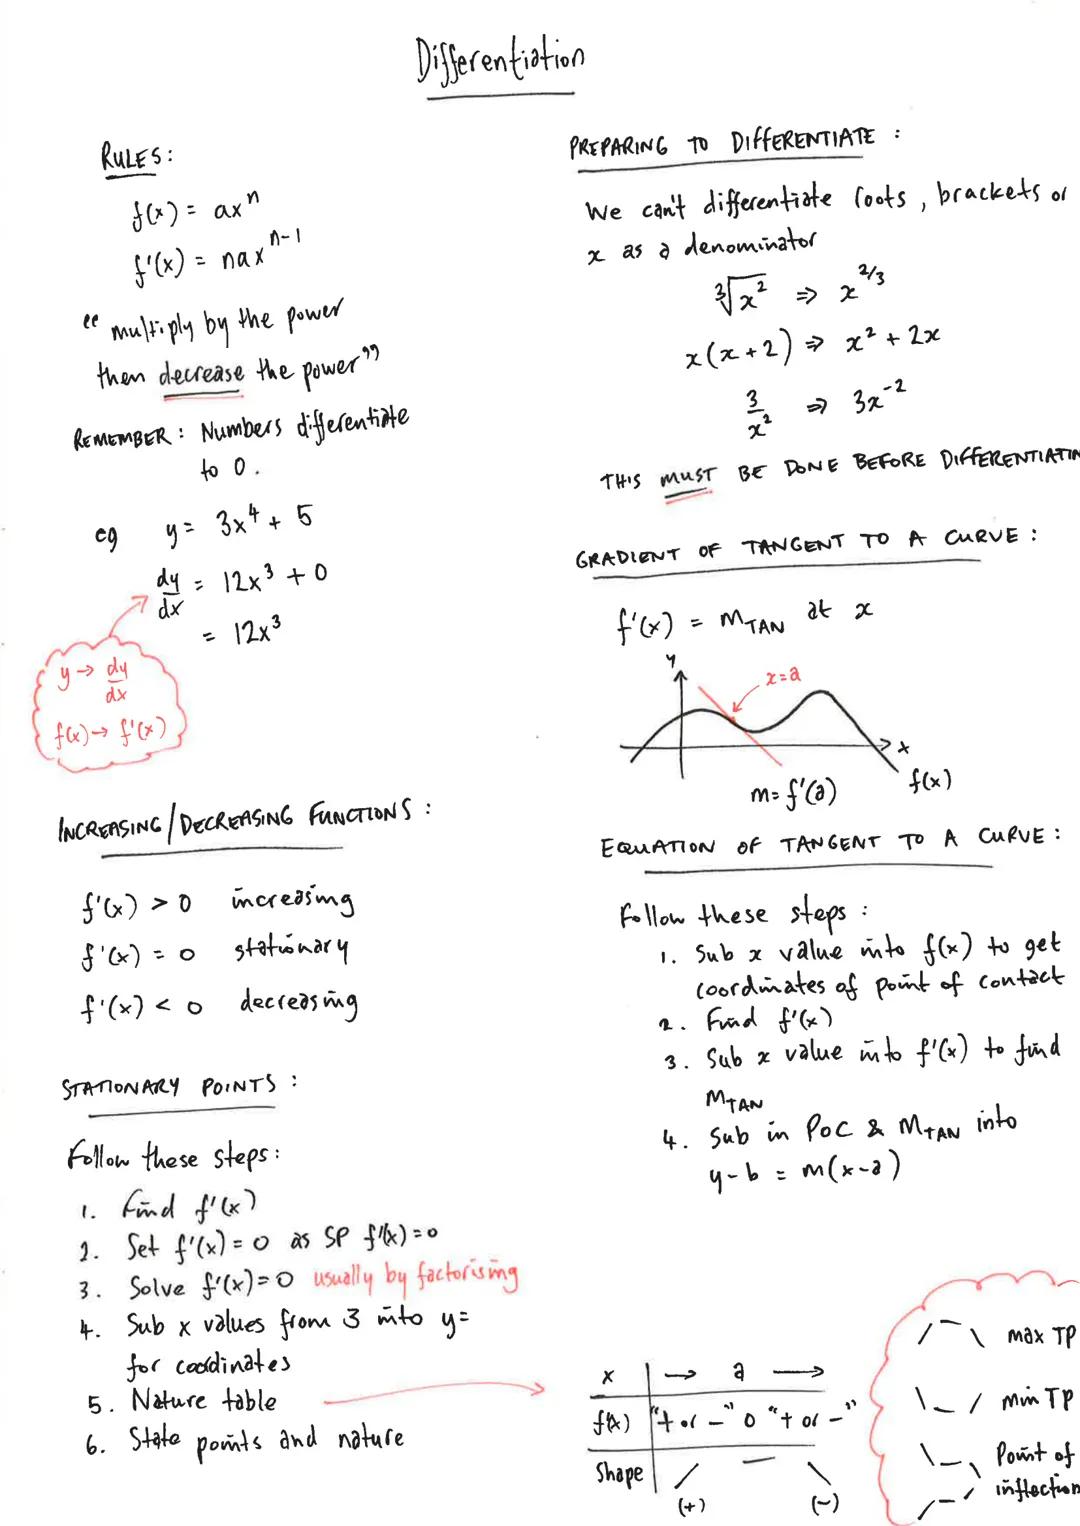 Differentiation
RULES:
f(x) = axⁿ
f'(x) = naxⁿ⁻¹
"multiply by the power
then decrease the power"
REMEMBER: Numbers differentiate
to 0.
eg y = 3x⁴ + 5
dy/dx = 12x³ + 0
= 12x³
y → dy/dx
f(x) → f'(x)
INCREASING/DECREASING FUNCTIONS:
f'(x) > 0 increasing
f'(x) = 0 stationary
f'(x) < 0 decreasing
STATIONARY POINTS:
Follow these steps:
1. Find f'(x)
2. Set f'(x) = 0 as SP f'(x) = 0
3. Solve f'(x) = 0 usually by factorising
4. Sub x values from 3 into y=
for coordinates
5. Nature table
6. State points and nature
PREPARING TO DIFFERENTIATE:
We can't differentiate roots, brackets or
x as a denominator
∛x² ⇒ x^2/3
x(x+2) ⇒ x² + 2x
3/x² ⇒ 3x⁻²
THIS MUST BE DONE BEFORE DIFFERENTIATIN
GRADIENT OF TANGENT TO A CURVE:
f'(x) = MTAN at x
y
x=a
x
m=f'(a)
f(x)
EQUATION OF TANGENT TO A CURVE:
Follow these steps:
1. Sub x value into f(x) to get
coordinates of point of contact
2. Find f'(x)
3. Sub x value into f'(x) to find
MTAN
4. Sub in POC & MTAN into
y-b = m(x-a)
x → a →
f'(x) "+ or -" 0 "+ or -"
Shape / — \
(+) (-)
max TP
min TP
Point of
inflection